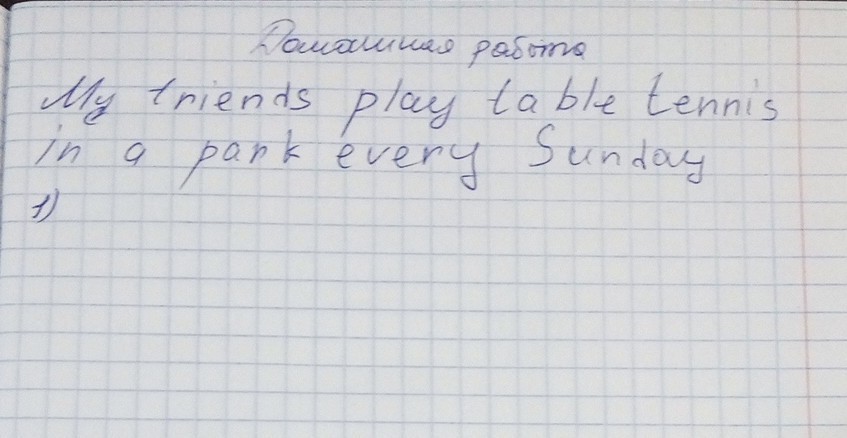 Домашняя работа
My friends play table tennis
in a park every Sunday
1)